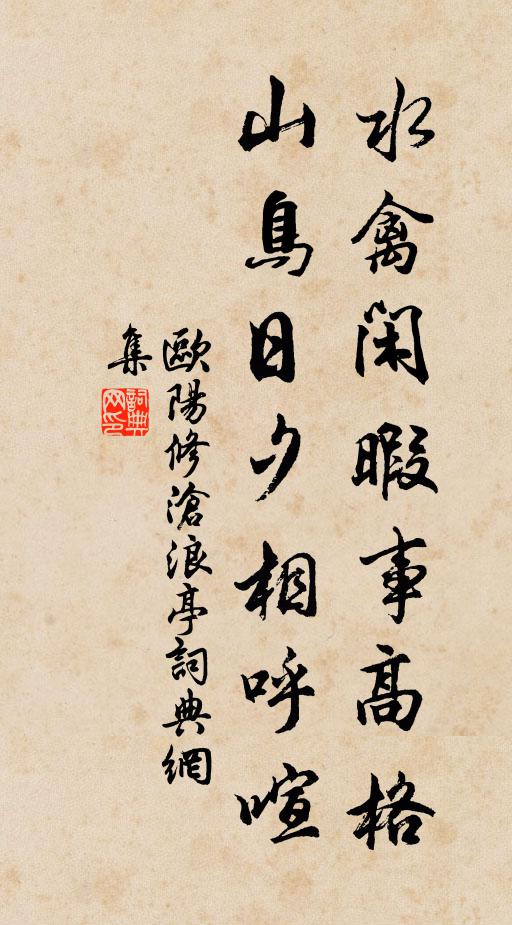 水禽闲暇事高格
山鳥日夕相呼喧
歐陽修滄浪亭詞典網
集
詞典
网印